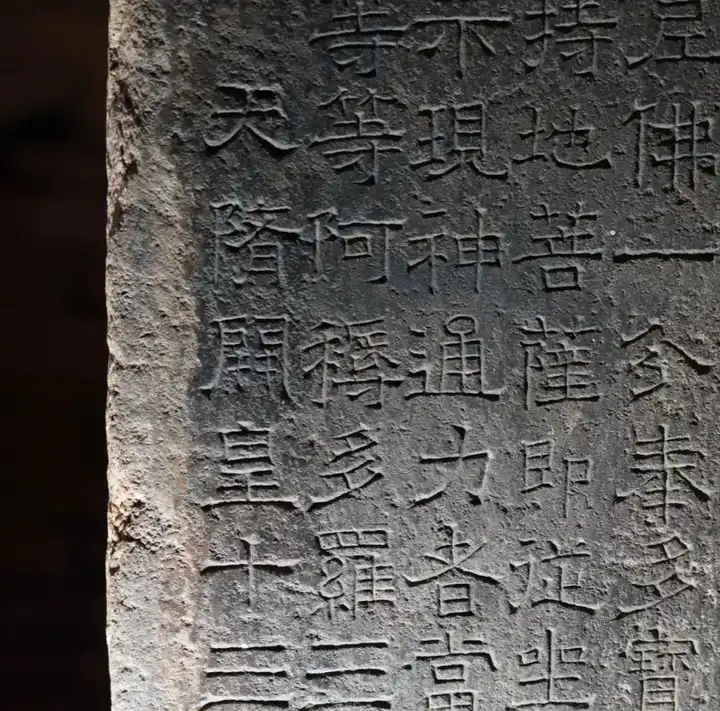 尼佛一分奉多寶
持地菩薩即從坐
示現神通力者當
等等阿耨多羅三
天隋開皇十三